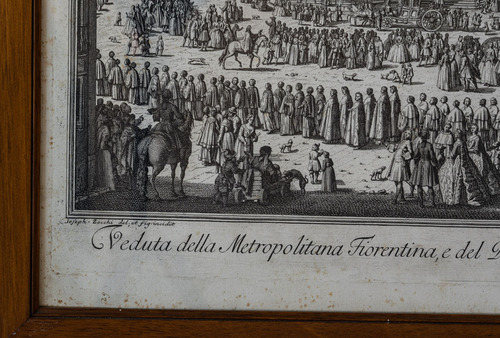 Joseph Zocchi del. et fig. incidit
Veduta della Metropolitana Fiorentina, e del